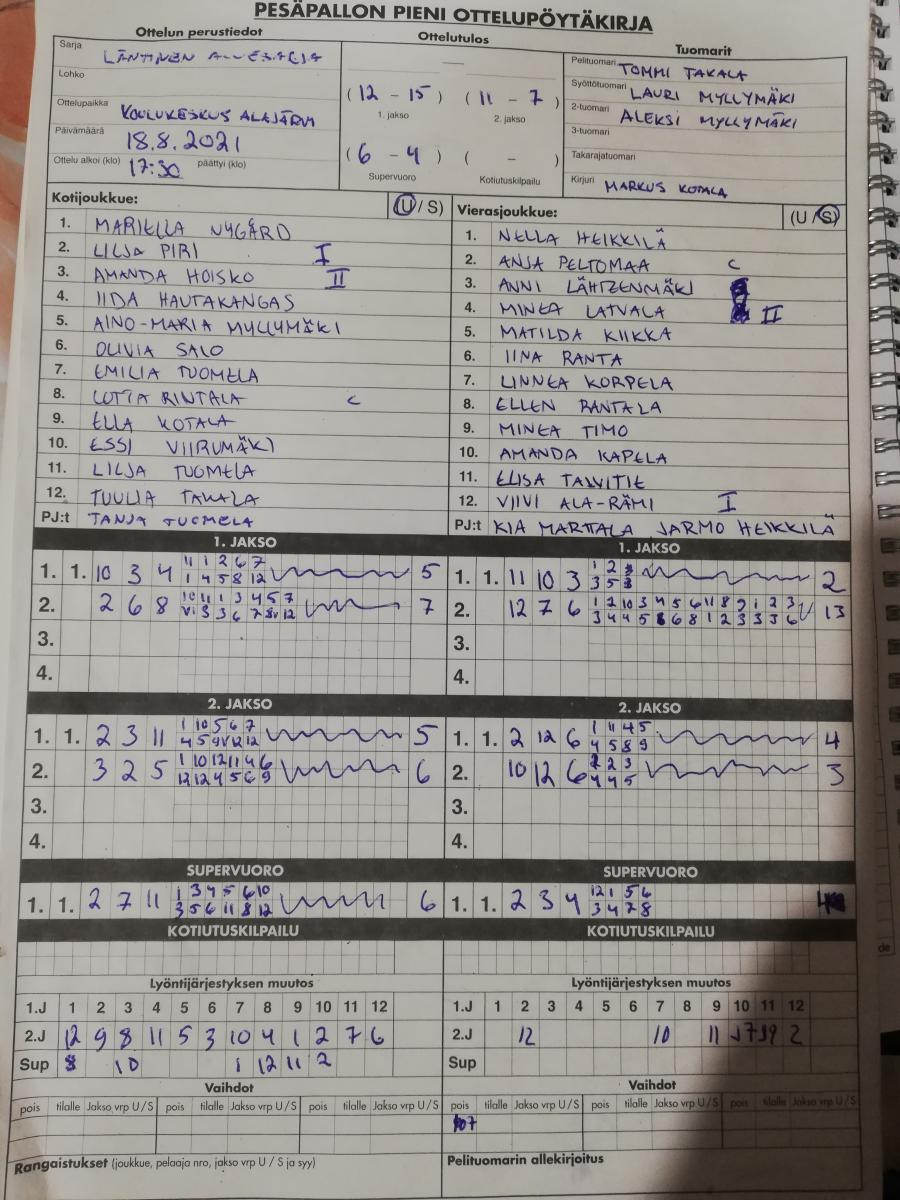 PESÄPALLON PIENI OTTELUPÖYTÄKIRJA
Ottelun perustiedot
Sarja LÄNTINEN
Lohko
Ottelupaikka KOULUKESKUS ALAJÄRVI
Päivämäärä 18.8.2021
Ottelu alkoi (klo) 17:30 päättyi (klo)
Ottelutulos
(12 - 15) (11 - 7)
1. jakso 2. jakso
(6 - 4) ( - )
Supervuoro Kotiutuskilpailu
Tuomarit
Pelituomari TOMMI TAKALA
Syöttötuomari LAURI MYLLYMÄKI
2-tuomari ALEKSI MYLLYMÄKI
3-tuomari
Takarajatuomari
Kirjuri MARKUS KOTALA
Kotijoukkue: (U / S)
1. MARIELLA NYGÅRD
2. LILJA PIRI I
3. AMANDA HOISKO II
4. IIDA HAUTAKANGAS
5. AINO-MARIA MYLLYMÄKI
6. OLIVIA SALO
7. EMILIA TUOMELA
8. LOTTA RINTALA C
9. ELLA KOTALA
10. ESSI VIIRUMÄKI
11. LILJA TUOMELA
12. TUULIA TAKALA
PJ:t TANJA TUOMELA
Vierasjoukkue: (U / S)
1. NELLA HEIKKILÄ
2. ANJA PELTOMAA C
3. ANNI LÄHTEENMÄKI
4. MINEA LATVALA II
5. MATILDA KIIKKA
6. IINA RANTA
7. LINNEA KORPELA
8. ELLEN RANTALA
9. MINEA TIMO
10. AMANDA KAPELA
11. ELISA TALVITIE
12. VIIVI ALA-RÄMI I
PJ:t KIA MARTTALA JARMO HEIKKILÄ
1. JAKSO
1. 1. 10 3 4 11 1 2 6 7 5
1 4 5 8 12
2. 2 6 8 10 11 1 3 4 5 7 7
3.
4.
1. JAKSO
1. 1. 11 10 3 1 2 3 2
3 5
2. 12 7 6 1 2 10 3 4 5 6 11 8 9 1 2 3 13
3 4 4 5 6 8 1 2 3 3 3 6
3.
4.
2. JAKSO
1. 1. 2 3 11 1 10 5 6 7 5
4 5 12 12
2. 3 2 5 1 10 12 11 4 6 6
12 12 4 5 6 9
3.
4.
2. JAKSO
1. 1. 2 12 6 1 11 4 5 4
4 5 8 9
2. 10 12 6 2 3 3
4 4 5
3.
4.
SUPERVUORO
1. 1. 2 7 11 1 3 4 5 6 10 6
3 5 6 11 8 12
SUPERVUORO
1. 1. 2 3 4 12 1 5 6 4
3 4 7 8
KOTIUTUSKILPAILU
KOTIUTUSKILPAILU
Lyöntijärjestyksen muutos
1.J 1 2 3 4 5 6 7 8 9 10 11 12
2.J 12 9 8 11 5 3 10 4 1 2 7 6
Sup 8 10 1 12 11 2
Lyöntijärjestyksen muutos
1.J 1 2 3 4 5 6 7 8 9 10 11 12
2.J 12 10 11 2
Sup
Vaihdot
pois tilalle Jakso vrp U / S pois tilalle Jakso vrp U / S pois tilalle Jakso vrp U / S
Vaihdot
pois tilalle Jakso vrp U / S pois tilalle Jakso vrp U / S pois tilalle Jakso vrp U / S
Rangaistukset (joukkue, pelaaja nro, jakso vrp U / S ja syy)
Pelituomarin allekirjoitus
de